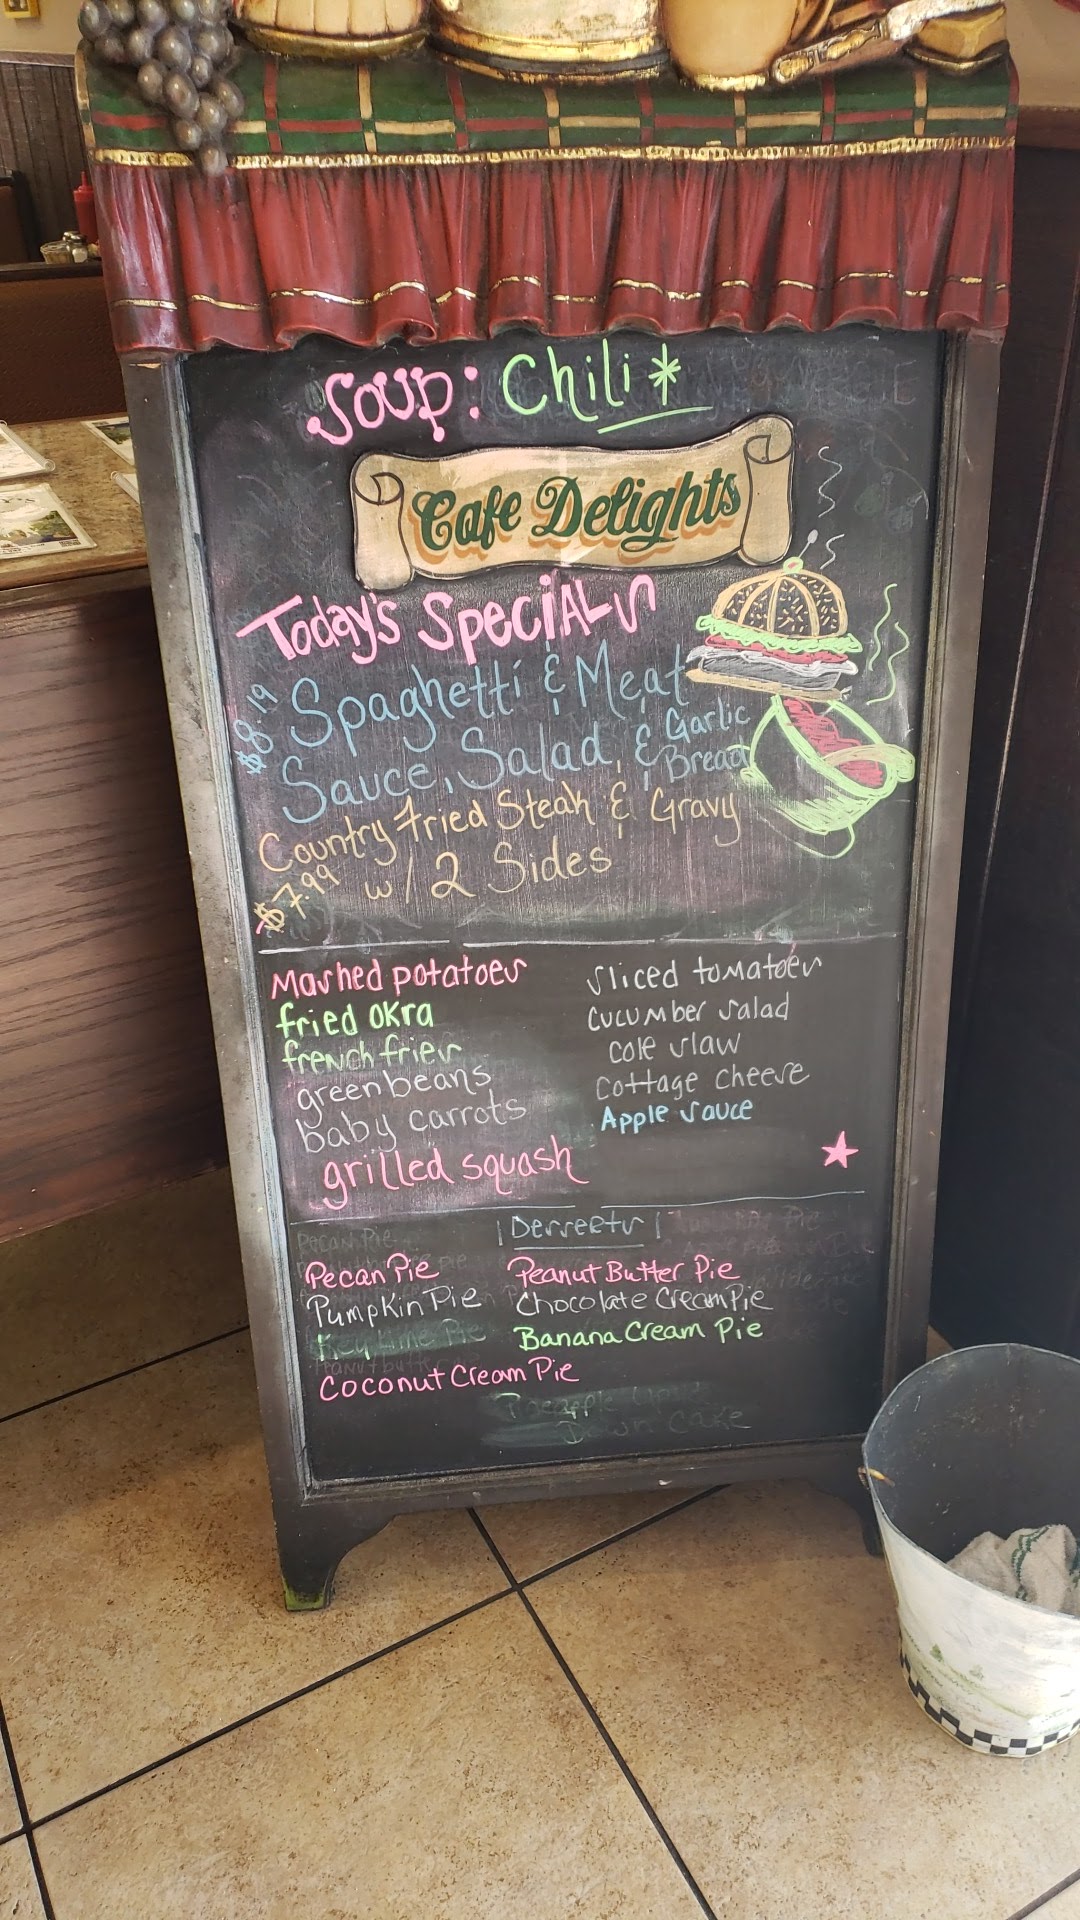 Soup: Chili *
Cafe Delights
Today's Specials
$8.19 Spaghetti & Meat
Sauce, Salad, & Garlic Bread
Country Fried Steak & Gravy
$7.99 w/ 2 Sides
Mashed potatoes
fried okra
french fries
green beans
baby carrots
grilled squash
sliced tomatoes
cucumber salad
cole slaw
cottage cheese
Apple sauce
Desserts
Pecan Pie
Pecan Pie
Pumpkin Pie
Key Lime Pie
Coconut Cream Pie
Peanut Butter Pie
Chocolate Cream Pie
Banana Cream Pie
Pineapple Upside
Down Cake